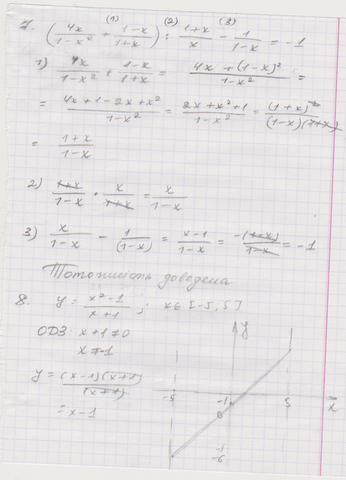 (1) (2) (3)
7. (4x/(1-x²) + (1-x)/(1+x)) : (1+x)/x - 1/(1-x) = -1
1) 4x/(1-x²) + (1-x)/(1+x) = (4x+(1-x)²)/(1-x²) =
= (4x+1-2x+x²)/(1-x²) = (2x+x²+1)/(1-x²) = (1+x)²/((1-x)(1+x))
= (1+x)/(1-x)
2) (1+x)/(1-x) · x/(1+x) = x/(1-x)
3) x/(1-x) - 1/(1-x) = (x-1)/(1-x) = -(1-x)/(1-x) = -1
Тотожність доведена
8. y = (x²-1)/(x+1) ; x∈[-5,5]
ОДЗ: x+1≠0
x≠-1
y = (x-1)(x+1)/(x+1)
= x-1
y
-5 -1 5 x
-1
-6